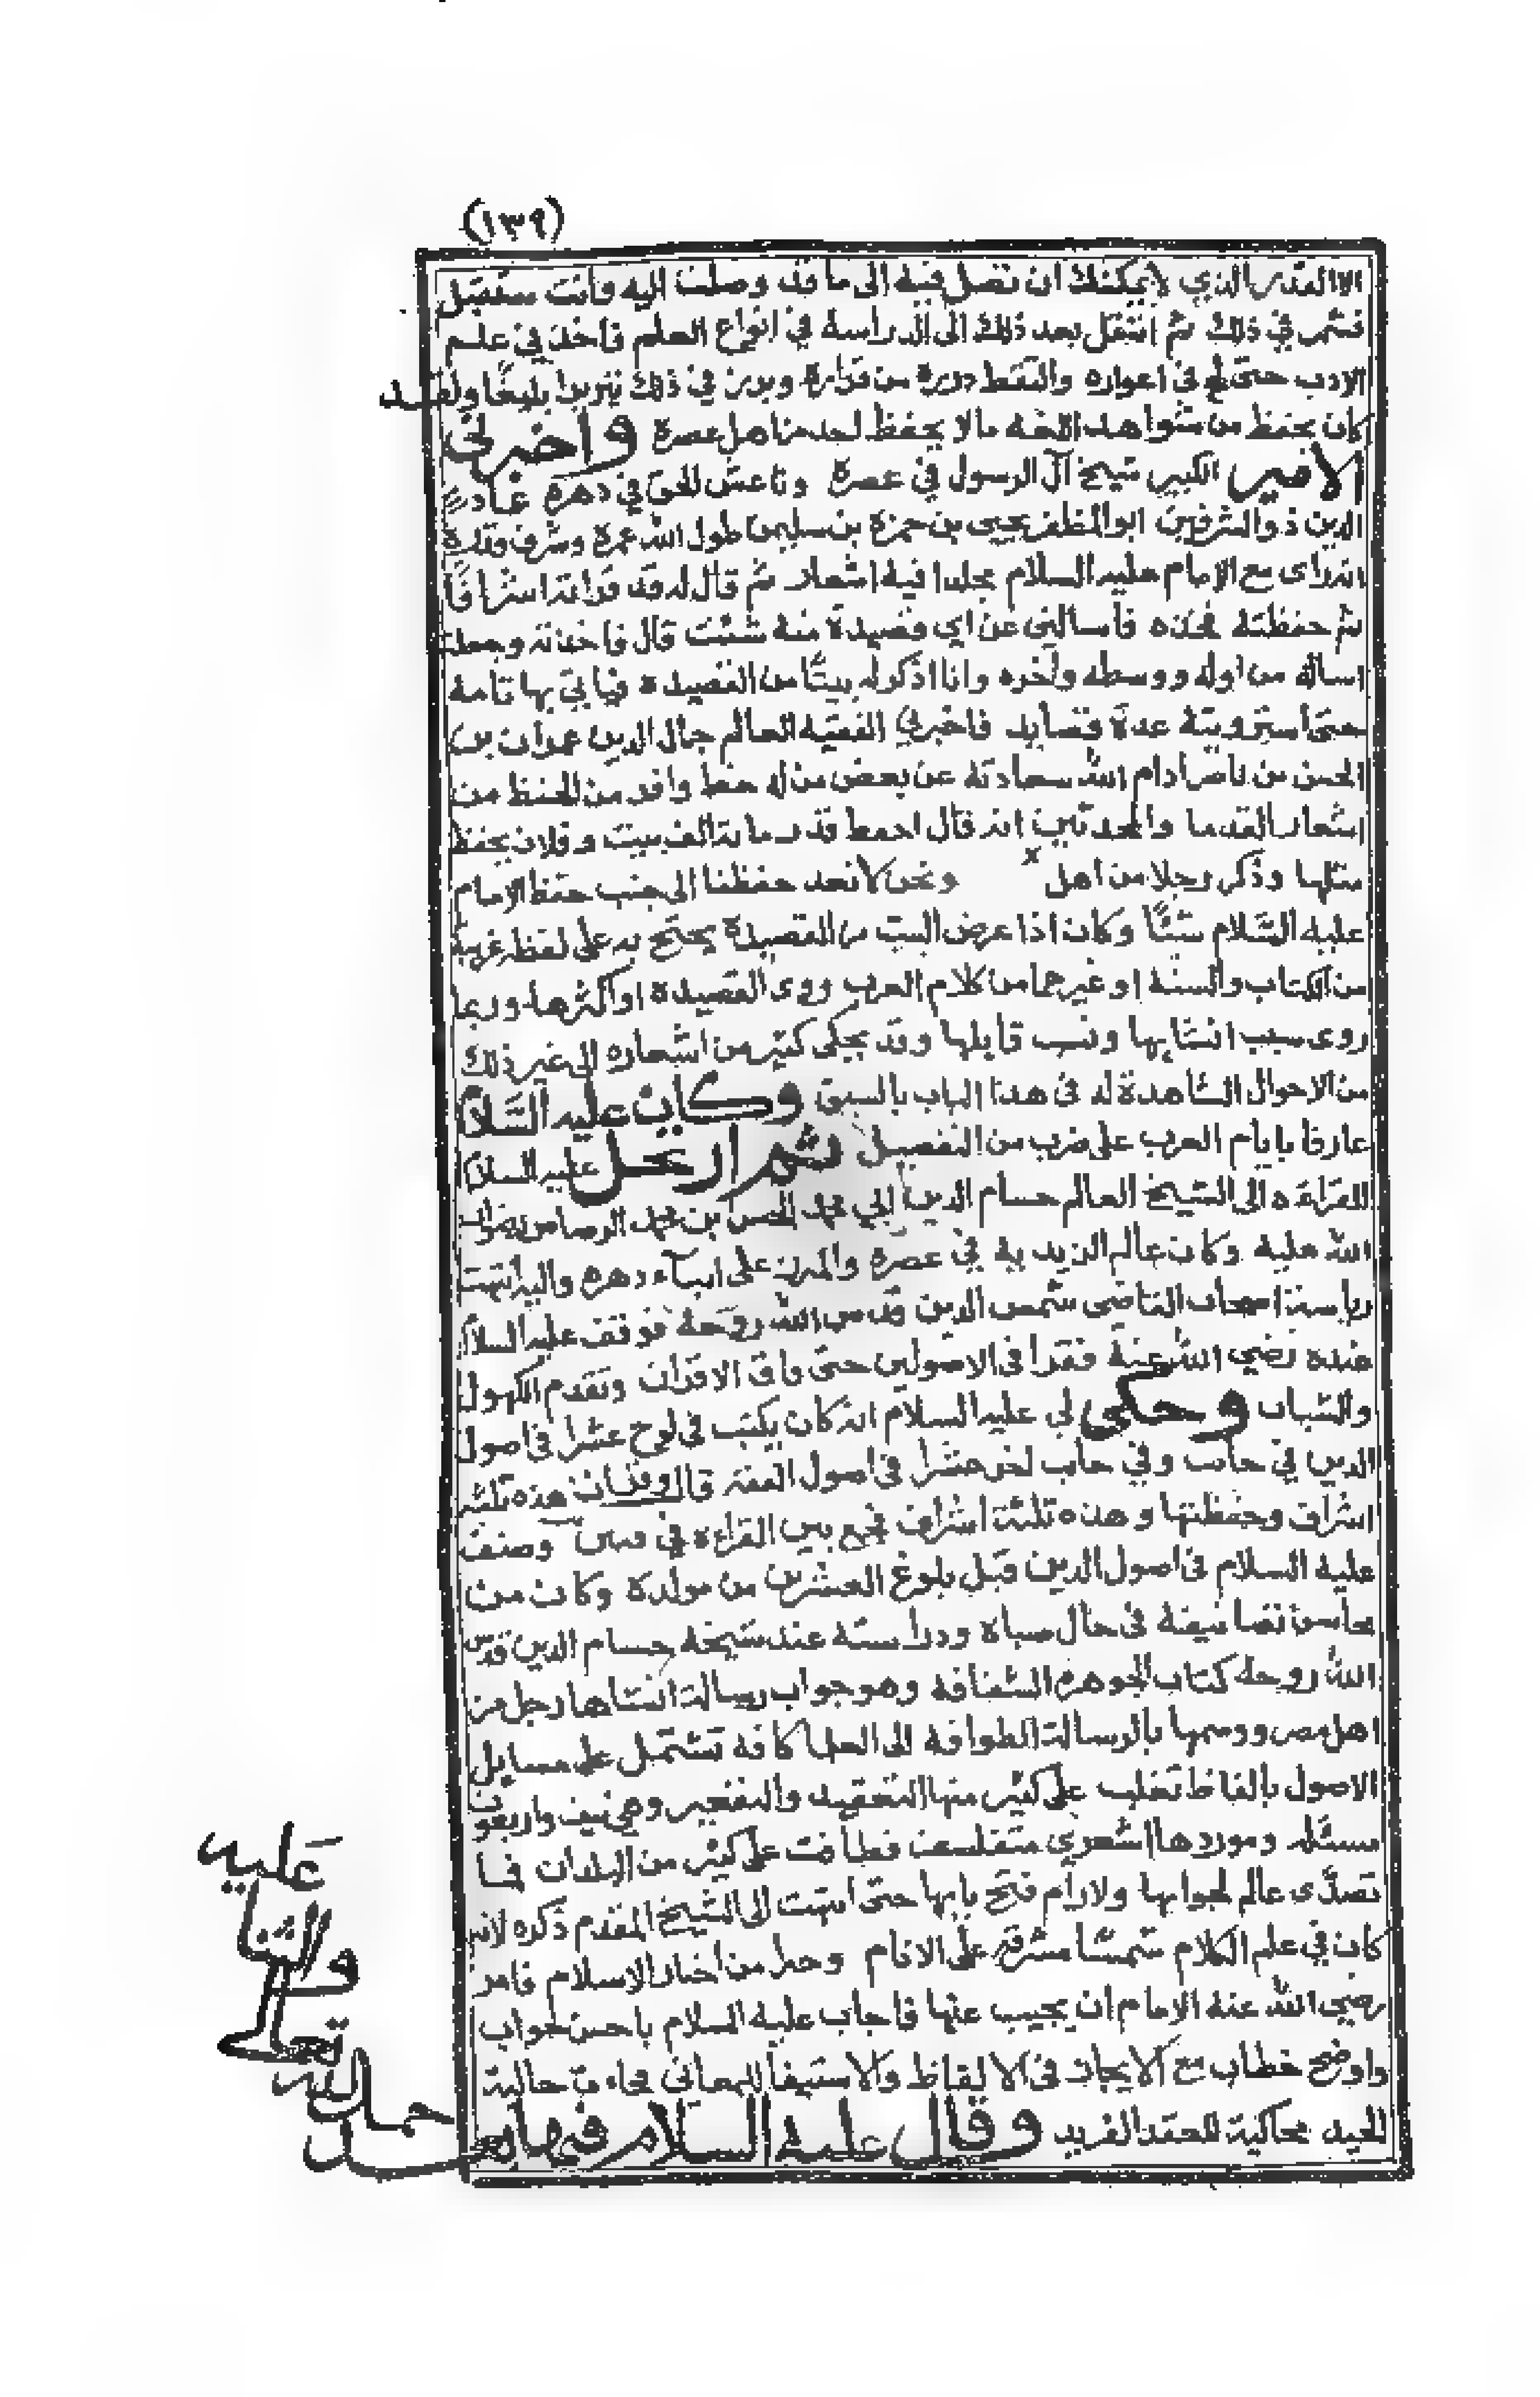 (١٣٩)
الا القدر الذي لا يمكنك ان تصل فيه الى ما قد وصلت اليه وانت ستقبل
فشمر في ذلك ثم انتقل بعد ذلك الى الدراسة في انواع العلم فاخذ في علم
الادب حتى بلغ في اغواره والتقط درره من قراره وبرز في ذلك تبريزا بليغا ولقد
كان يحفظ من شواهد اللغه مالا يحفظ احد من اهل عصرة واخبرني
الامير الكبير شيخ آل الرسول في عصرة وناعش الحق في دهره عماد
الدين ذو الشرفين ابو المظفر يحيى بن حمزة بن سليمن طول الله عمرة وشرف قدره
انه راى مع الامام عليه السلام مجلدا فيه اشعار ثم قال له قد قراته اشرافا
ثم حفظته فخذه فاسالني عن اي قصيدة منه شئت قال فاخذته وجعلت
اساله من اوله ووسطه واخره وانا اذكر له بيتا من القصيدة فياتي بها تامة
حتى استرويته عدة قصايد فاخبرني الفقيه العالم جمال الدين عمران بن
الحسن بن ناصر ادام الله سعادته عن بعض من له حفظ وافر من الحفظ من
اشعار القدما والمحدثين انه قال احفظ قدر مائة الف بيت وفلان يحفظ
مثلها وذكر رجلا من اهل × ونحن لا نعد حفظنا الى جنب حفظ الامام
عليه السلام شئا وكان اذا عرض البيت من القصيدة يحتج به على لفظة غريبة
من الكتاب والسنة او غيرهما من كلام العرب روى القصيدة او اكثرها وربما
روى سبب انشايها ونسب قايلها وقد يحكى كثير من اشعاره الى غير ذلك
من الاحوال الشاهدة له في هذا الباب بالسبق وكان عليه السلام
عارفا بايام العرب على ضرب من التفصيل ثم ارتحل عليه السلام
للقراءه الى الشيخ العالم حسام الدين ابي محمد الحسن بن محمد الرصاص رضوان
الله عليه وكان عالم الزيديه في عصره والمبرز على ابناء دهره واليه انتهت
رياسة اصحاب القاضي شمس الدين قدس الله روحه فوقف عليه السلام
عنده رضي الله عنه فقرا في الاصولين حتى فاق الاقران وتقدم الكهول
والشباب وحكى لي عليه السلام انه كان يكتب في لوح عشرا في اصول
الدين في جانب وفي جانب اخر عشرا في اصول الفقه قال وفرات هذه ثلثة
اشراف وحفظتها وهذه ثلثة اشراف فجمع بين القراءة في وصنف
عليه السلام في اصول الدين قبل بلوغ العشرين من مولده وكان من
محاسن تصانيفه في حال صباه ودراسته عند شيخه حسام الدين قدس
الله روحه كتاب الجوهرة الشفافة وهو جواب رسالة انشاها رجل من
اهل مصر ووسمها بالرسالة الطوافة الى العلما كافة تشتمل على مسايل
الاصول بالفاظ تغلب على كثير منها التعقيد والتقعير وهي نيف واربعون
مسئلة وموردها اشعري متفلسف فطافت على كثير من البلدان فما
تصدى عالم لجوابها ولا رام فتح بابها حتى انتهت الى الشيخ المقدم ذكره لانه
كان في علم الكلام شمسا مشرقة على الانام وحبرا من احبار الاسلام فامر
رضي الله عنه الامام ان يجيب عنها فاجاب عليه السلام باحسن جواب
واوضح خطاب مع الايجاز في الالفاظ والاستيفا للمعاني فجاءت حالية
للجيد محاكية للعقد الفريد وقال عليه السلام فيها بعد
حمد الله
تعالى
والثنا
عليه